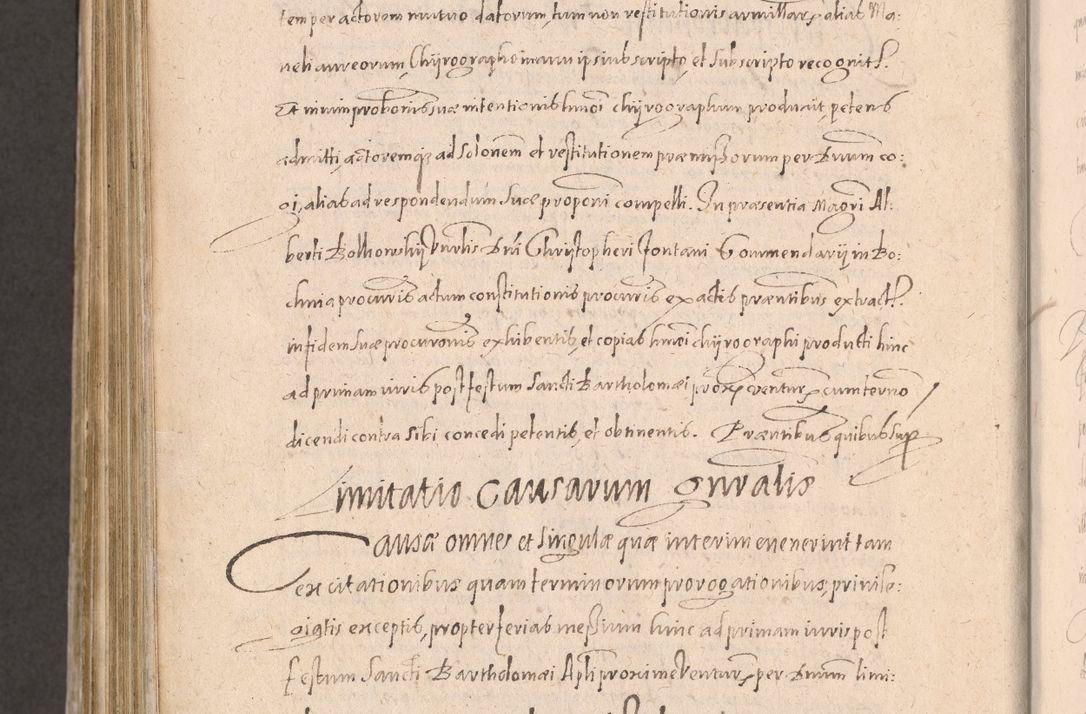 tem per actorem mutuo datorum, tum non restitutionis armillarx alias Ma:
neli aureorum, Chijrographo manu ipsius scripto, et subscripto recognit?.
Et in vim probonis suæ intentionis hmoi chijrographum produxit, petens
admitti, actoremq3 ad solonem et restitutionem præmissorum per Dnum co:
gi, alias ad respondendum suæ proponi compelli. In præsentia Magri Al:
berti Bolkowskij Dni Christopheri Fontani Commendarij in Bo:
chnia procuris actum constitutionis procuris ex actis præntibus extract?.
in fidem suæ procuronis exhibentis, et copias hmoi chijrographi producti hinc
ad primam iuris post festum Sancti Bartholomæi prox venturx cum terno
dicendi contra sibi concedi petentis, et obtinentis. Præntibus quibus supr
Limitatio Causarum gnralis
Causæ omnes et singulæ quæ interim evenerint tam
ex citationibus quam terminorum prorogationibus, privile:
giatis exceptis, propter ferias messium hinc ad primam iuris post
festum Sancti Bartholomæi Apli proxime ventur, per Dnum limi: